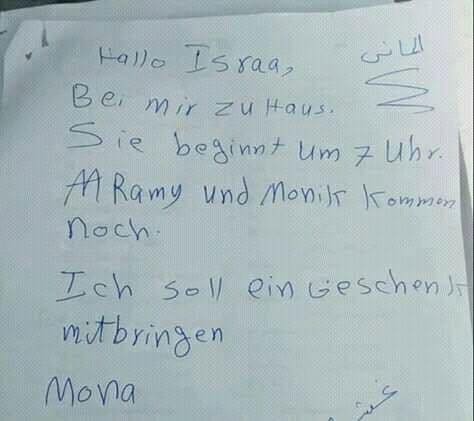 Hallo Israa,
الماني
Bei mir zu Haus.
Sie beginnt um 7 Uhr.
Ramy und Monik kommen
noch.
Ich soll ein Geschenk
mitbringen
Mona